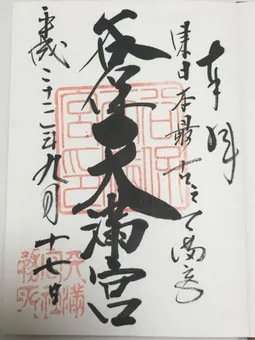 奉拝
東日本最古之天満宮
谷保天満宮
平成二十二年九月十七日
天満
宮社
務所